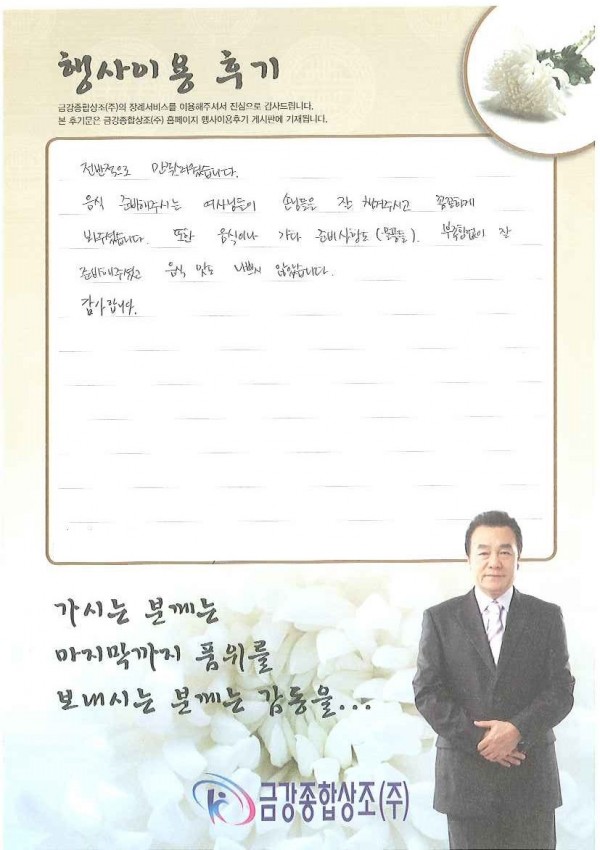 행사이용 후기
금강종합상조(주)의 장례서비스를 이용해주셔서 진심으로 감사드립니다.
본 후기문은 금강종합상조(주) 홈페이지 행사이용후기 게시판에 기재됩니다.
전반적으로 만족스러웠습니다.
음식 준비해주시는 여사님들이 손님들을 잘 챙겨주시고 꼼꼼하게
봐주셨습니다. 또한 음식이나 각다 준비사항도 (물품들). 부족함없이 잘
준비해주셨고 음식 맛도 나쁘지 않았습니다.
감사합니다.
가시는 분께는
마지막까지 품위를
보내시는 분께는 감동을...
금강종합상조(주)